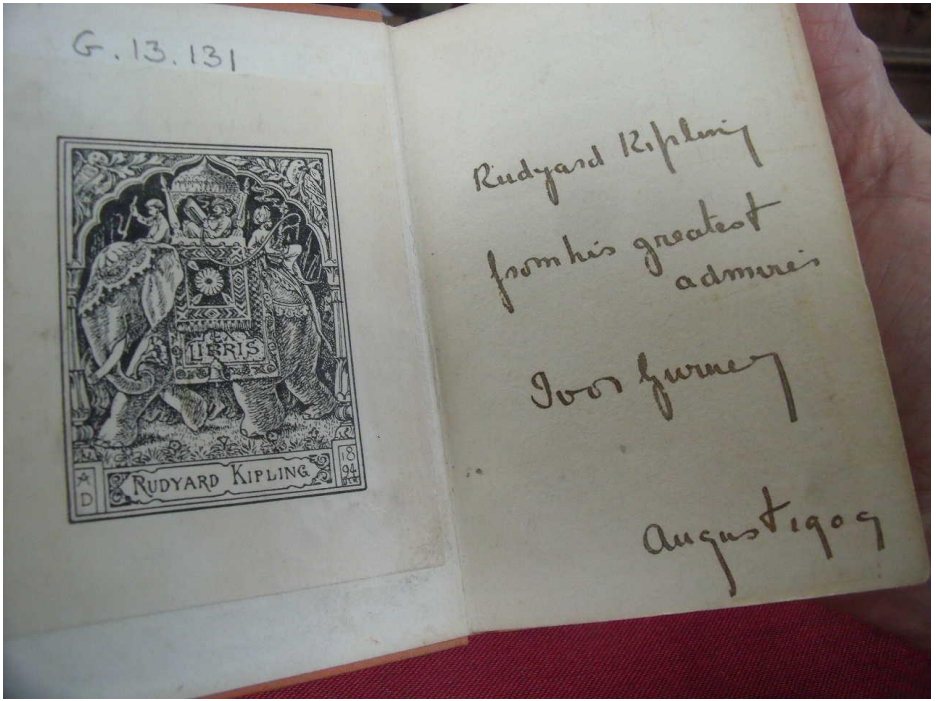 G.13.131
EX
LIBRIS
AD
RUDYARD KIPLING
1894
Rudyard Kipling
from his greatest
admirer
Ivor Gurney
August 1909